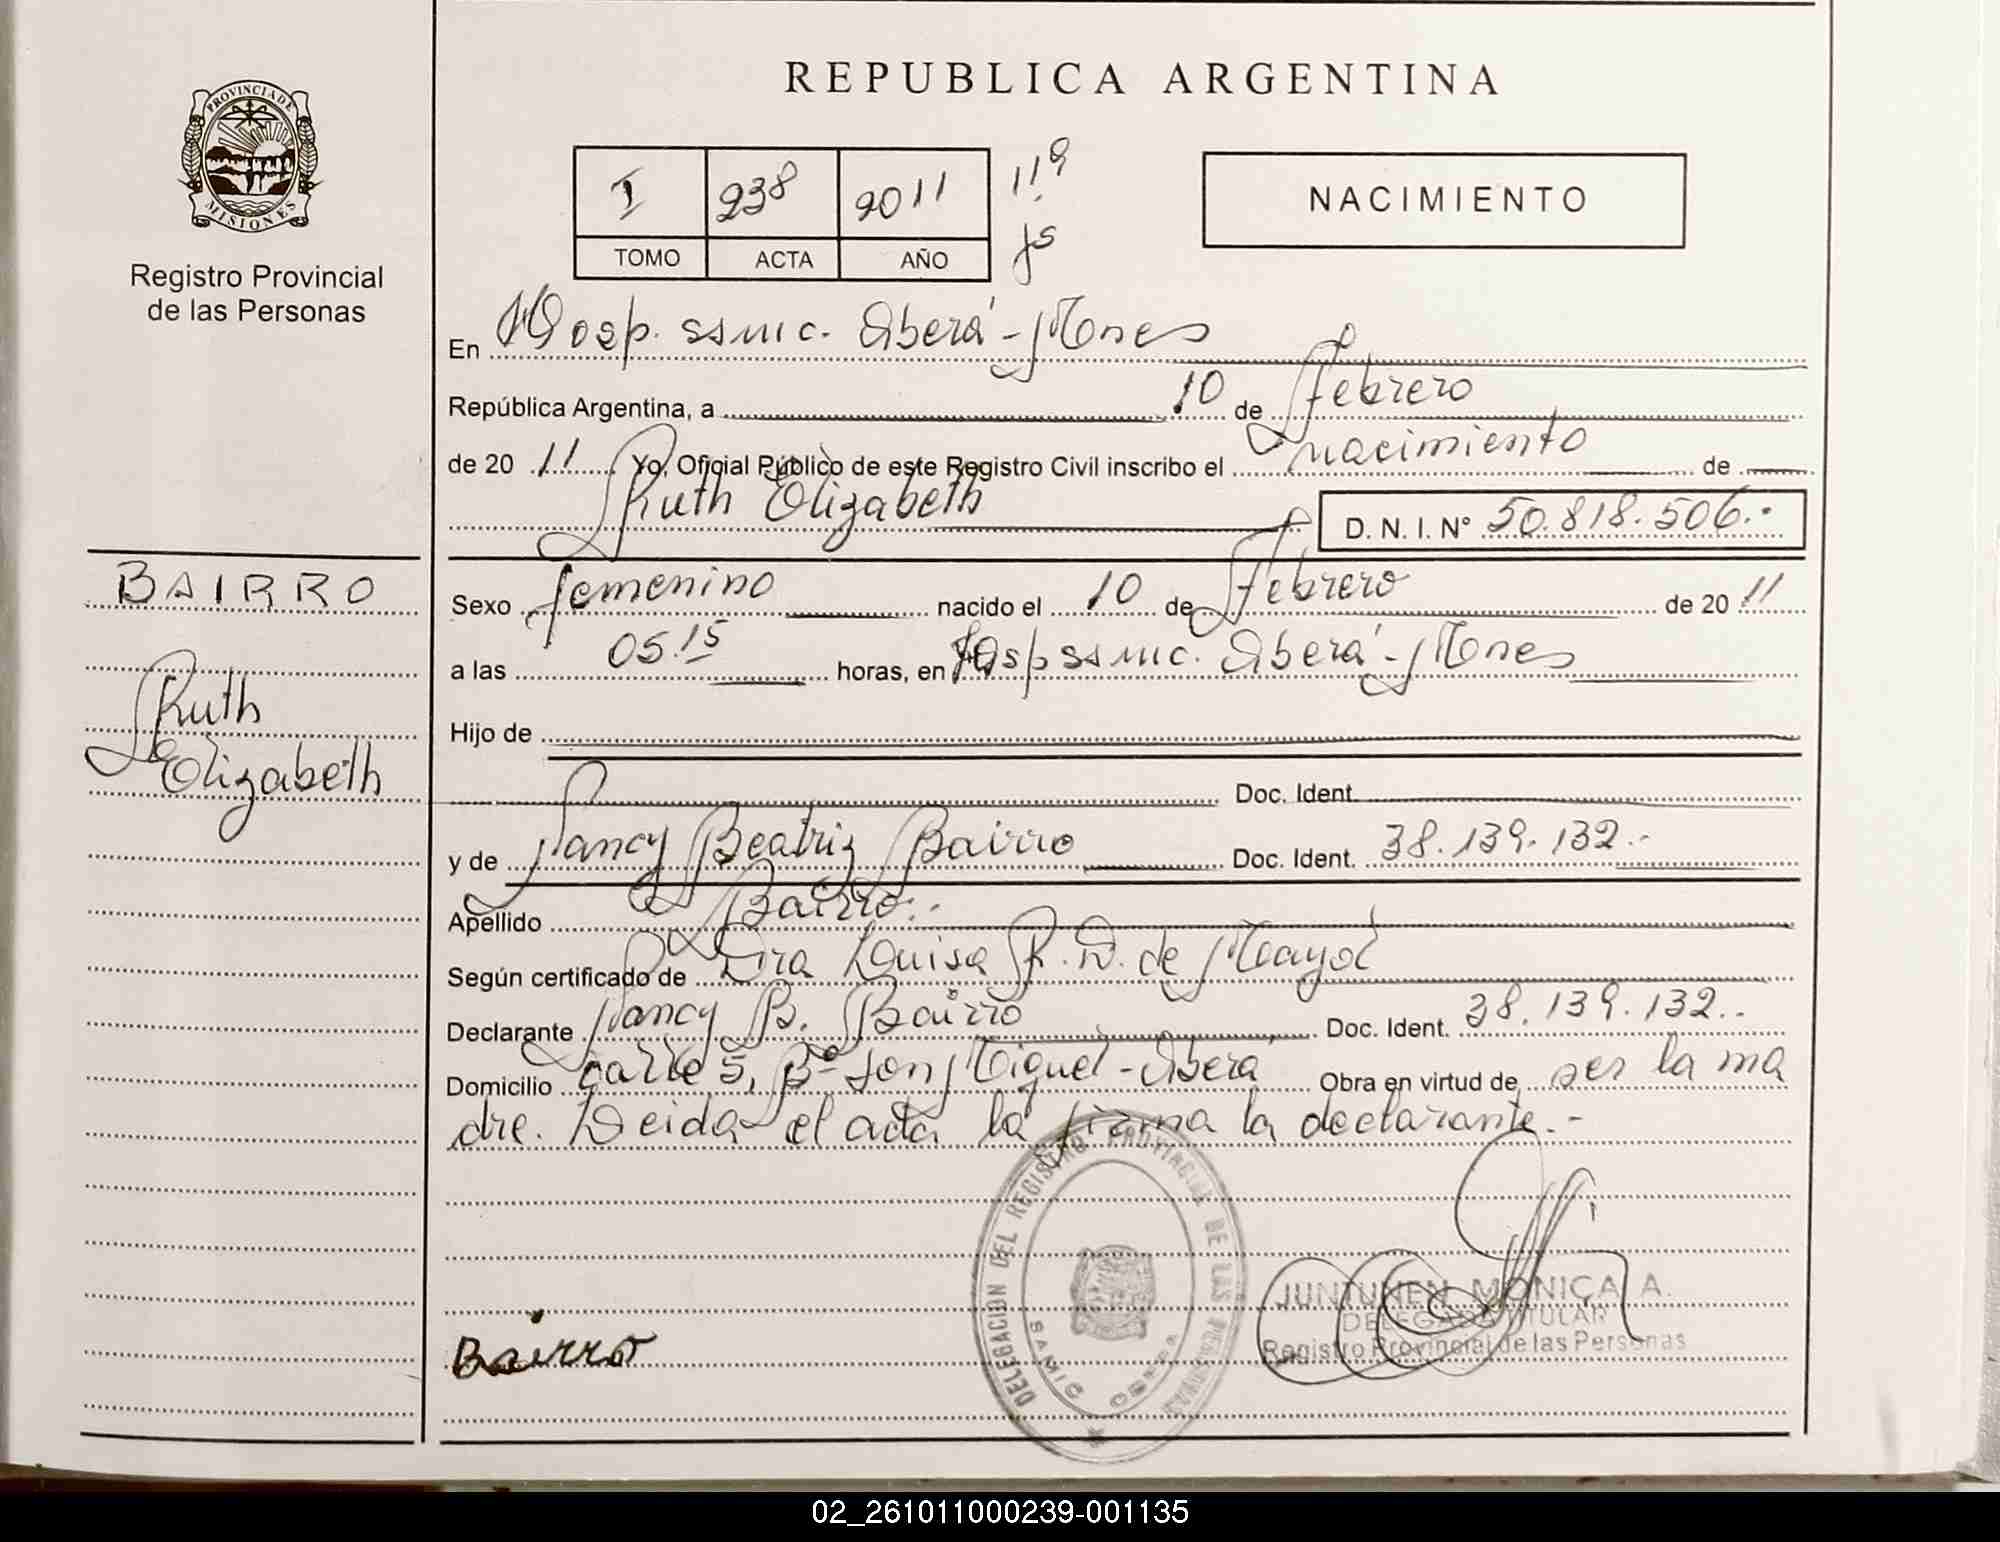 REPUBLICA ARGENTINA
PROVINCIA DE
MISIONES
Registro Provincial
de las Personas
I 238 2011 119
TOMO ACTA AÑO js
NACIMIENTO
En Hosp. ssmic. Oberá - Mones
República Argentina, a 10 de Febrero
de 20 11 Yo, Oficial Público de este Registro Civil inscribo el nacimiento de
Ruth Elizabeth D. N. I. N° 50.818.506.-
BAIRRO
Ruth
Elizabeth
Sexo femenino nacido el 10 de Febrero de 20 11
a las 05.15 horas, en Hosp ssmic. Oberá - Mones
Hijo de
Doc. Ident.
y de Nancy Beatriz Bairro Doc. Ident. 38.139.132.-
Apellido Bairro.-
Según certificado de Dra Luisa R. D. de Mayol
Declarante Nancy B. Bairro Doc. Ident. 38.139.132.-
Domicilio calle 5, Bº San Miguel - Oberá Obra en virtud de ser la ma
dre. Leida el acta la firma la declarante.-
DELEGACION DEL REGISTRO PROVINCIAL DE LAS PERSONAS
SAMIC OBERA
JUNTUNEN MONICA A.
DELEGADA TITULAR
Registro Provincial de las Personas
Bairro
02_261011000239-001135